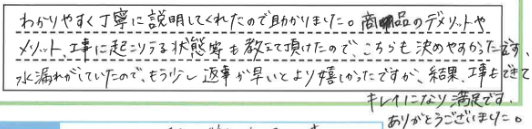 わかりやすく丁寧に説明してくれたので助かりました。商品のデメリットや
メリット、工事に起こりうる状態等も教えて頂けたので、こちらも決めやすかったです。
水漏れがしていたので、もう少し返事が早いとより嬉しかったですが、結果、工事もできて
キレイになり満足です。
ありがとうございました。